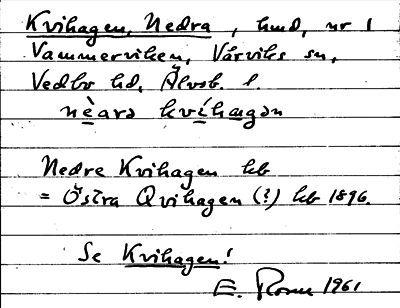 Kvihagen, Nedra, hmd, nr 1
Vammerviken, Vårviks sn,
Vedbo hd, Älvsb. l.
nèarə kvíhagən
Nedre Kvihagen kb
= Östra Qvihagen (?) kb 1896.
Se Kvihagen!
E. 1961